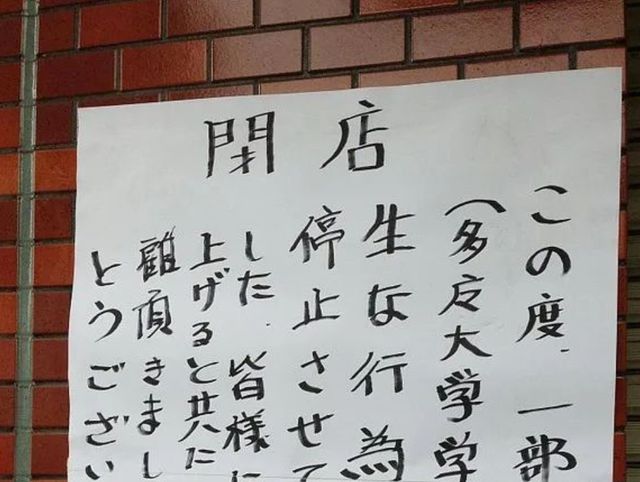 閉店
この度、一部
(多大学学
生な行為
停止させて
した、皆様に
上げると共に
顧頂きまし
とうござい